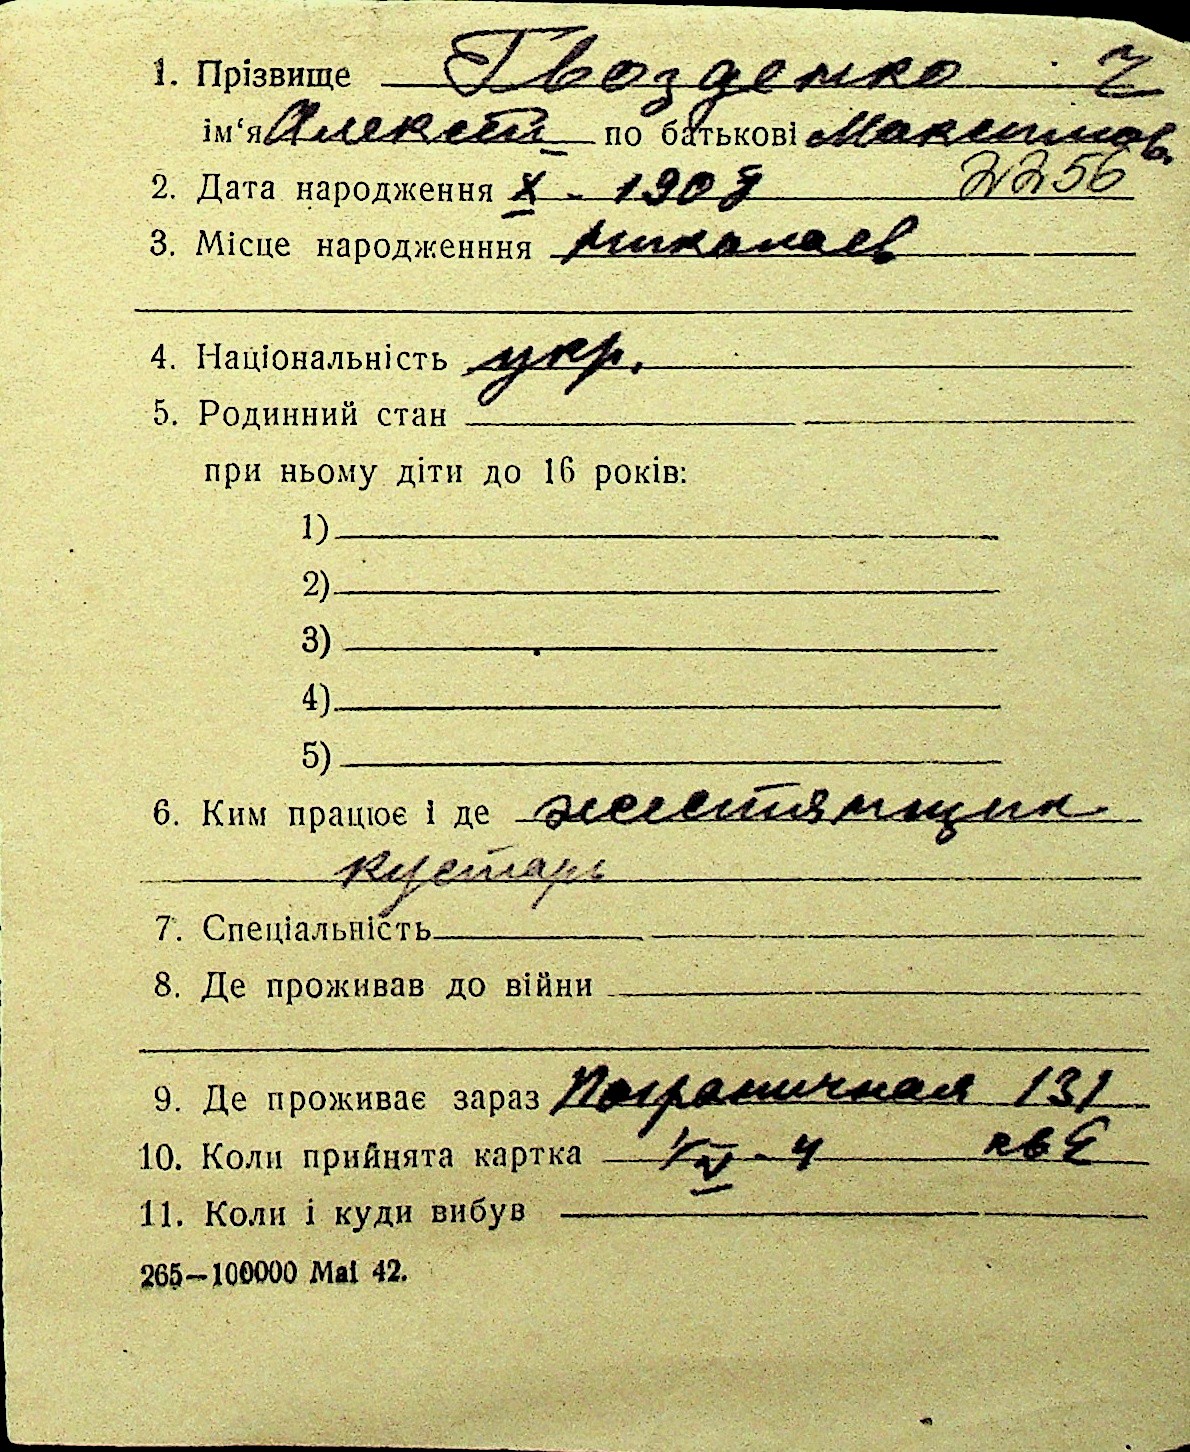 1. Прізвище Гвозденко
ім‘я Алексей по батькові Максимов.
2. Дата народження X - 190 2256
3. Місце народженння Николаев
4. Національність укр.
5. Родинний стан
при ньому діти до 16 років:
1)
2)
3)
4)
5)
6. Ким працює і де жестянщик
кустарь
7. Спеціальність
8. Де проживав до війни
9. Де проживає зараз Пограничная 131
10. Коли прийнята картка кв
11. Коли і куди вибув
265—100000 Mai 42.